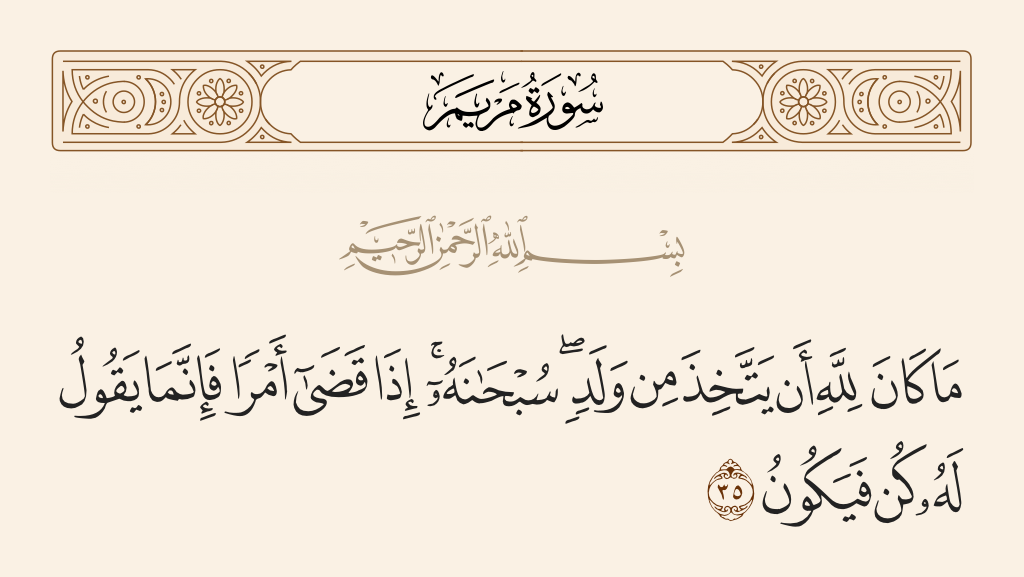 سُورَةُ مَرْيَمَ
بِسْمِ ٱللَّهِ ٱلرَّحْمَٰنِ ٱلرَّحِيمِ
مَا كَانَ لِلَّهِ أَن يَتَّخِذَ مِن وَلَدٍۖ سُبْحَٰنَهُۥٓۚ إِذَا قَضَىٰٓ أَمْرًا فَإِنَّمَا يَقُولُ
لَهُۥ كُن فَيَكُونُ ٣٥